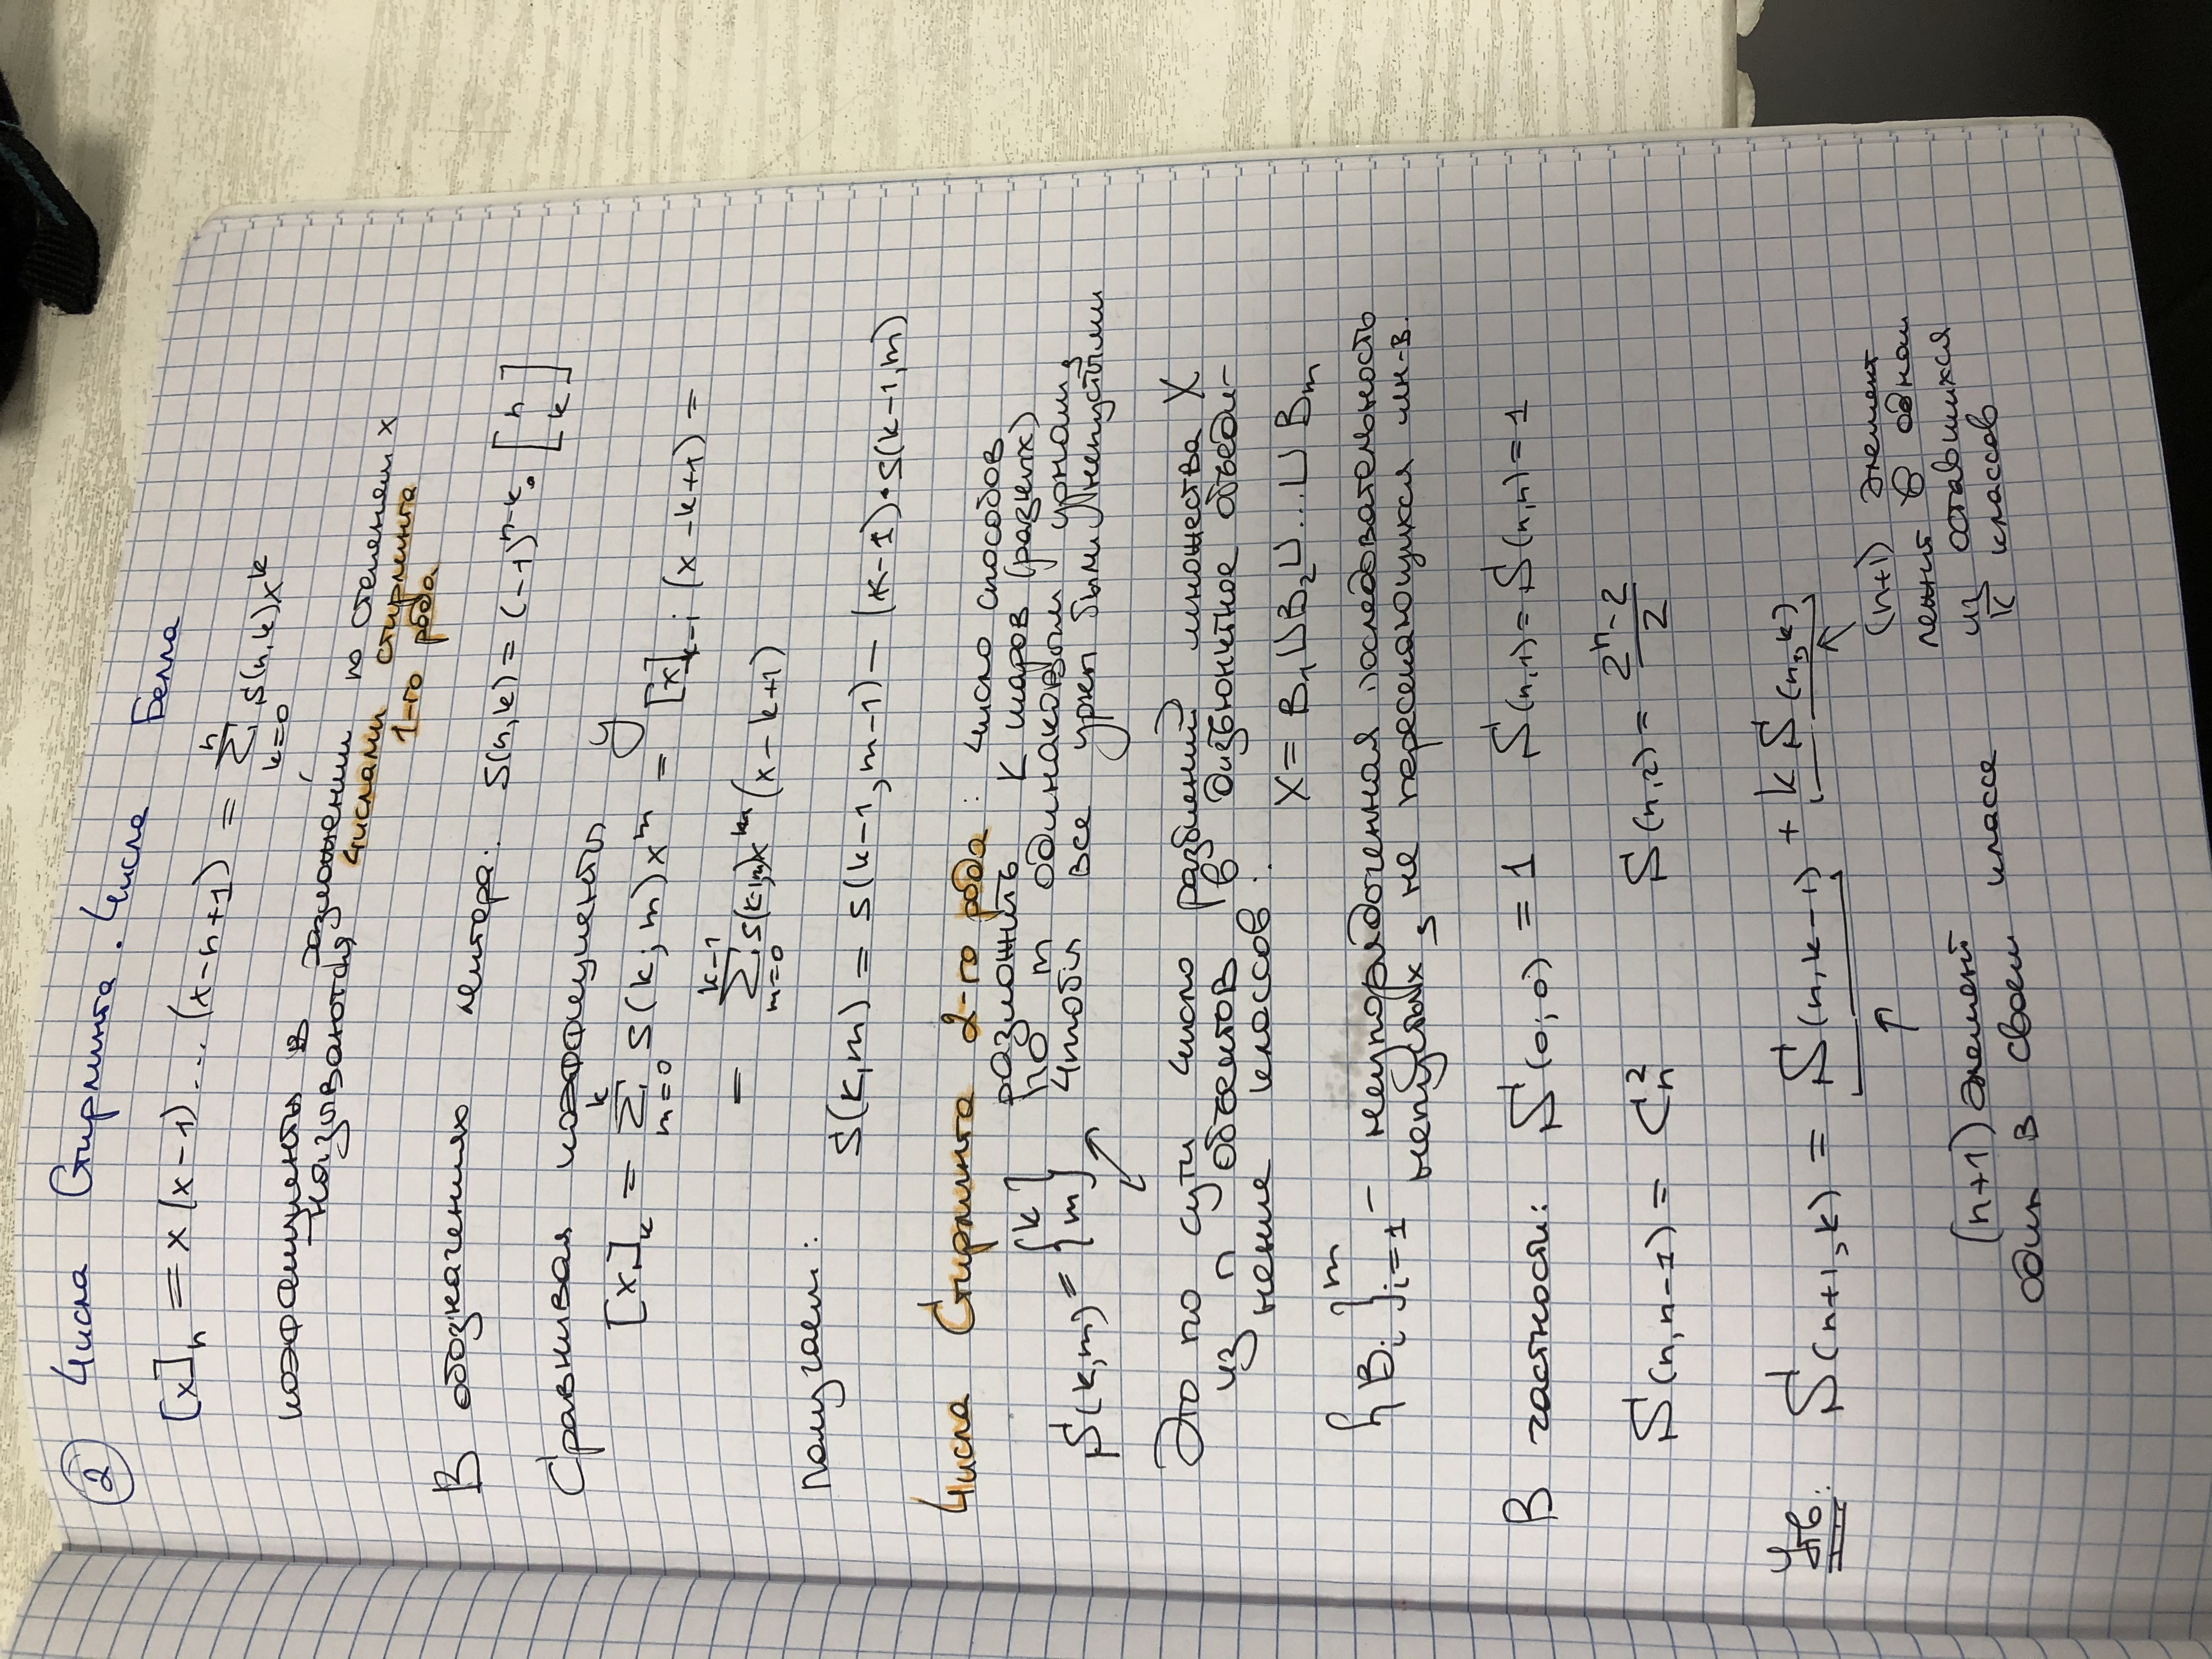 ② Числа Стирлинга. Числа Белла
[x]_n = x(x-1)...(x-n+1) = ∑_{k=0}^{n} s(n,k)x^k
коэффициенты в разложении по степеням x
называются числами стирлинга
1-го рода
В обозначениях лектора: s(n,k) = (-1)^{n-k} · [n k]
Сравнивая коэффициенты у
[x]_k = ∑_{m=0}^{k} s(k;m)x^m = [x]_{k-1} (x-k+1) =
= ∑_{m=0}^{k-1} s(k-1,m)x^m (x-k+1)
Получаем:
s(k,m) = s(k-1,m-1) - (k-1)·s(k-1,m)
Числа Стирлинга 2-го рода: число способов
разложить k шаров (разных)
S(k,m) = {k m} по m одинаковым урнам,
чтобы все урны были непустыми
Это по сути число разбиений множества X
из n объектов в дизъюнктное объеди-
нение классов:
X = B_1 ⊔ B_2 ⊔ ... ⊔ B_m
{B_i}_{i=1}^{m} - неупорядоченная последовательность
непустых, не пересекающихся мн-в.
В частности: S(0;0) = 1 S(n,1) = S(n,n) = 1
S(n,n-1) = C_n^2 S(n,2) = (2^n-2)/2
Утв: S(n+1,k) = S(n,k-1) + k S(n,k)
(n+1) элемент
лежит в одном
из оставшихся
k классов
(n+1) элемент
один в своем классе